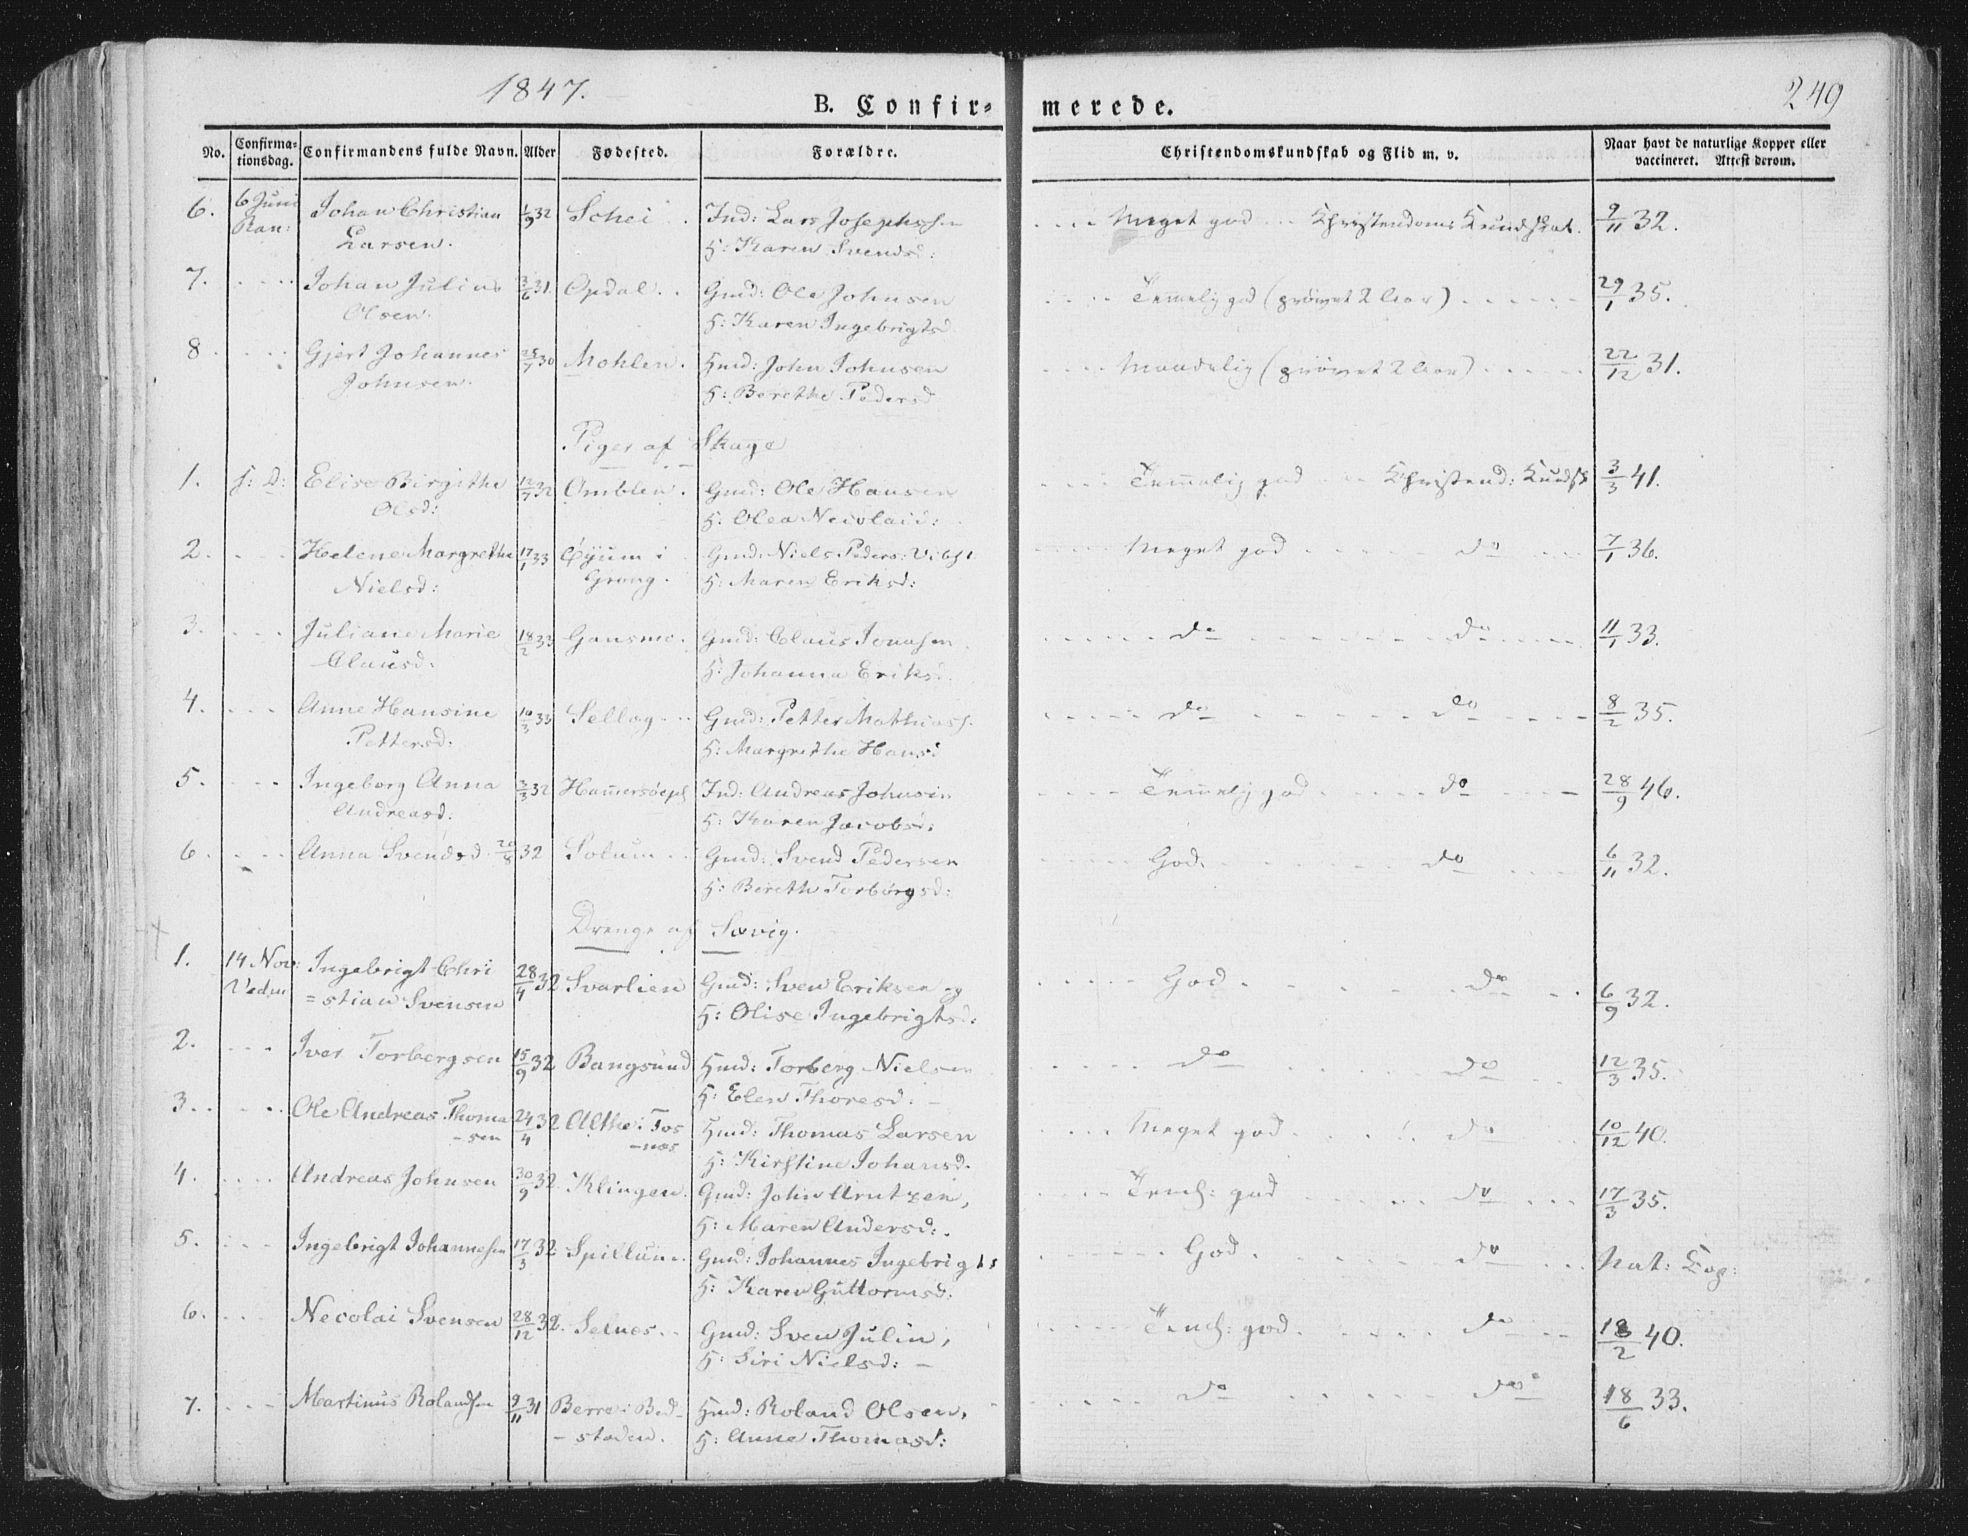 1847.
B. Confir- merede.
249
No. Confirma-tionsdag. Confirmandens fulde Navn. Alder Fødested. Forældre. Christendomskundskab og Flid m. v. Naar havt de naturlige Kopper eller vaccineret. Attest derom.
6. 6 Juni Johan Christian 1/9 32 Schei . Ind: Lars Josephss. .... Meget god .. Christendoms Kundskab. 9/11 32.
Ran: Larsen. H: Karen Svendsd:
7. .... Johan Julius 3/6 31 Opdal .. Gmd: Ole Johnsen .... Temelig god (prøvet 2 Aar) ..... 29/1 35.
Olsen. H: Karen Ingebrigtsd.
8. .... Gjert Johannes 25/7 30 Mohlen. Hmd: John Johnsen .... Maadelig (prøvet 2 Aar) ..... 22/12 31.
Johnsen. H: Berethe Pedersd
Piger af Skage
1. s: D: Elise Birgithe 12/7 32 Amblen. Gmd: Ole Hansen .... Temmelig god ... Christend: Kundsk 3/3 41.
Olsd: H: Olea Nicolaid:
2. ... Helene Margrethe 17/1 33 Øyum i Gmd: Niels Peders: .... Meget god ..... do ... 7/1 36.
Nielsd: Grong. H: Maren Eriksd:
3. .... Juliane Marie 18/2 33 Gansmo. Gmd: Claus Jonasen. ..... do ...... do .... 11/1 33.
Clausd: H: Johanna Eriksd.
4. ... Anne Hansine 10/3 33 Sellæg ... Gmd: Petter Mathiass. ..... do ...... do .... 8/2 35.
Pettersd: H: Margrethe Hansd
5. ... Ingeborg Anna 3/3 32 Ind: Andreas Johnsen .... Temelig god ..... do .... 28/9 46.
Andreasd. H: Karen Jacobsd:
6. .... Anna Svendsd. 20/8 32 Solum ... Gmd: Svend Pedersen .... God. ..... do ... 6/11 32.
H: Bereth Torbørgsd:
Drenge af Sævig.
1. 14 Nov: Ingebrigt Chri 28/4 32 Svarlien Gmd: Sven Eriksen og ..... God ..... do ... 6/9 32.
Vedm =stian Svensen H: Olise Ingebrigtsd:
2. ... Iver Torbergsen 15/9 32 Bangsund Hmd: Torberg Nielsen ..... do ..... do 12/3 35.
H: Elen Thoresd: -
3. ... Ole Andreas Thoma 24/4 32 Althe i Fos Hmd: Thomas Larsen .... Meget god ..... do ... 10/12 40.
-sen -næs H: Kirstine Johansd.
4. .... Andreas Johnsen 30/9 32 Klingen. Gmd: John Arntzen, .... Tem: god ..... do ... 17/3 35.
H: Maren Andersd:.
5. ... Ingebrigt Johannesen 17/3 32 Spillum.. Gmd: Johannes Ingebrigts ...... God. ..... do ... Nat: Kop:
H: Karen Guttormsd.
6. ... Necolai Svensen 28/12 32. Selnes.. Gmd: Sven Julin, .... Tem: god ..... do ... 18/2 40.
H: Siri Nielsd: -
7. ... Martinus Rolandsen 9/11 31 Berre i Bed- Hmd: Roland Olsen. ..... do ..... do 18/6 33.
-staden. H: Anne Thomasd: